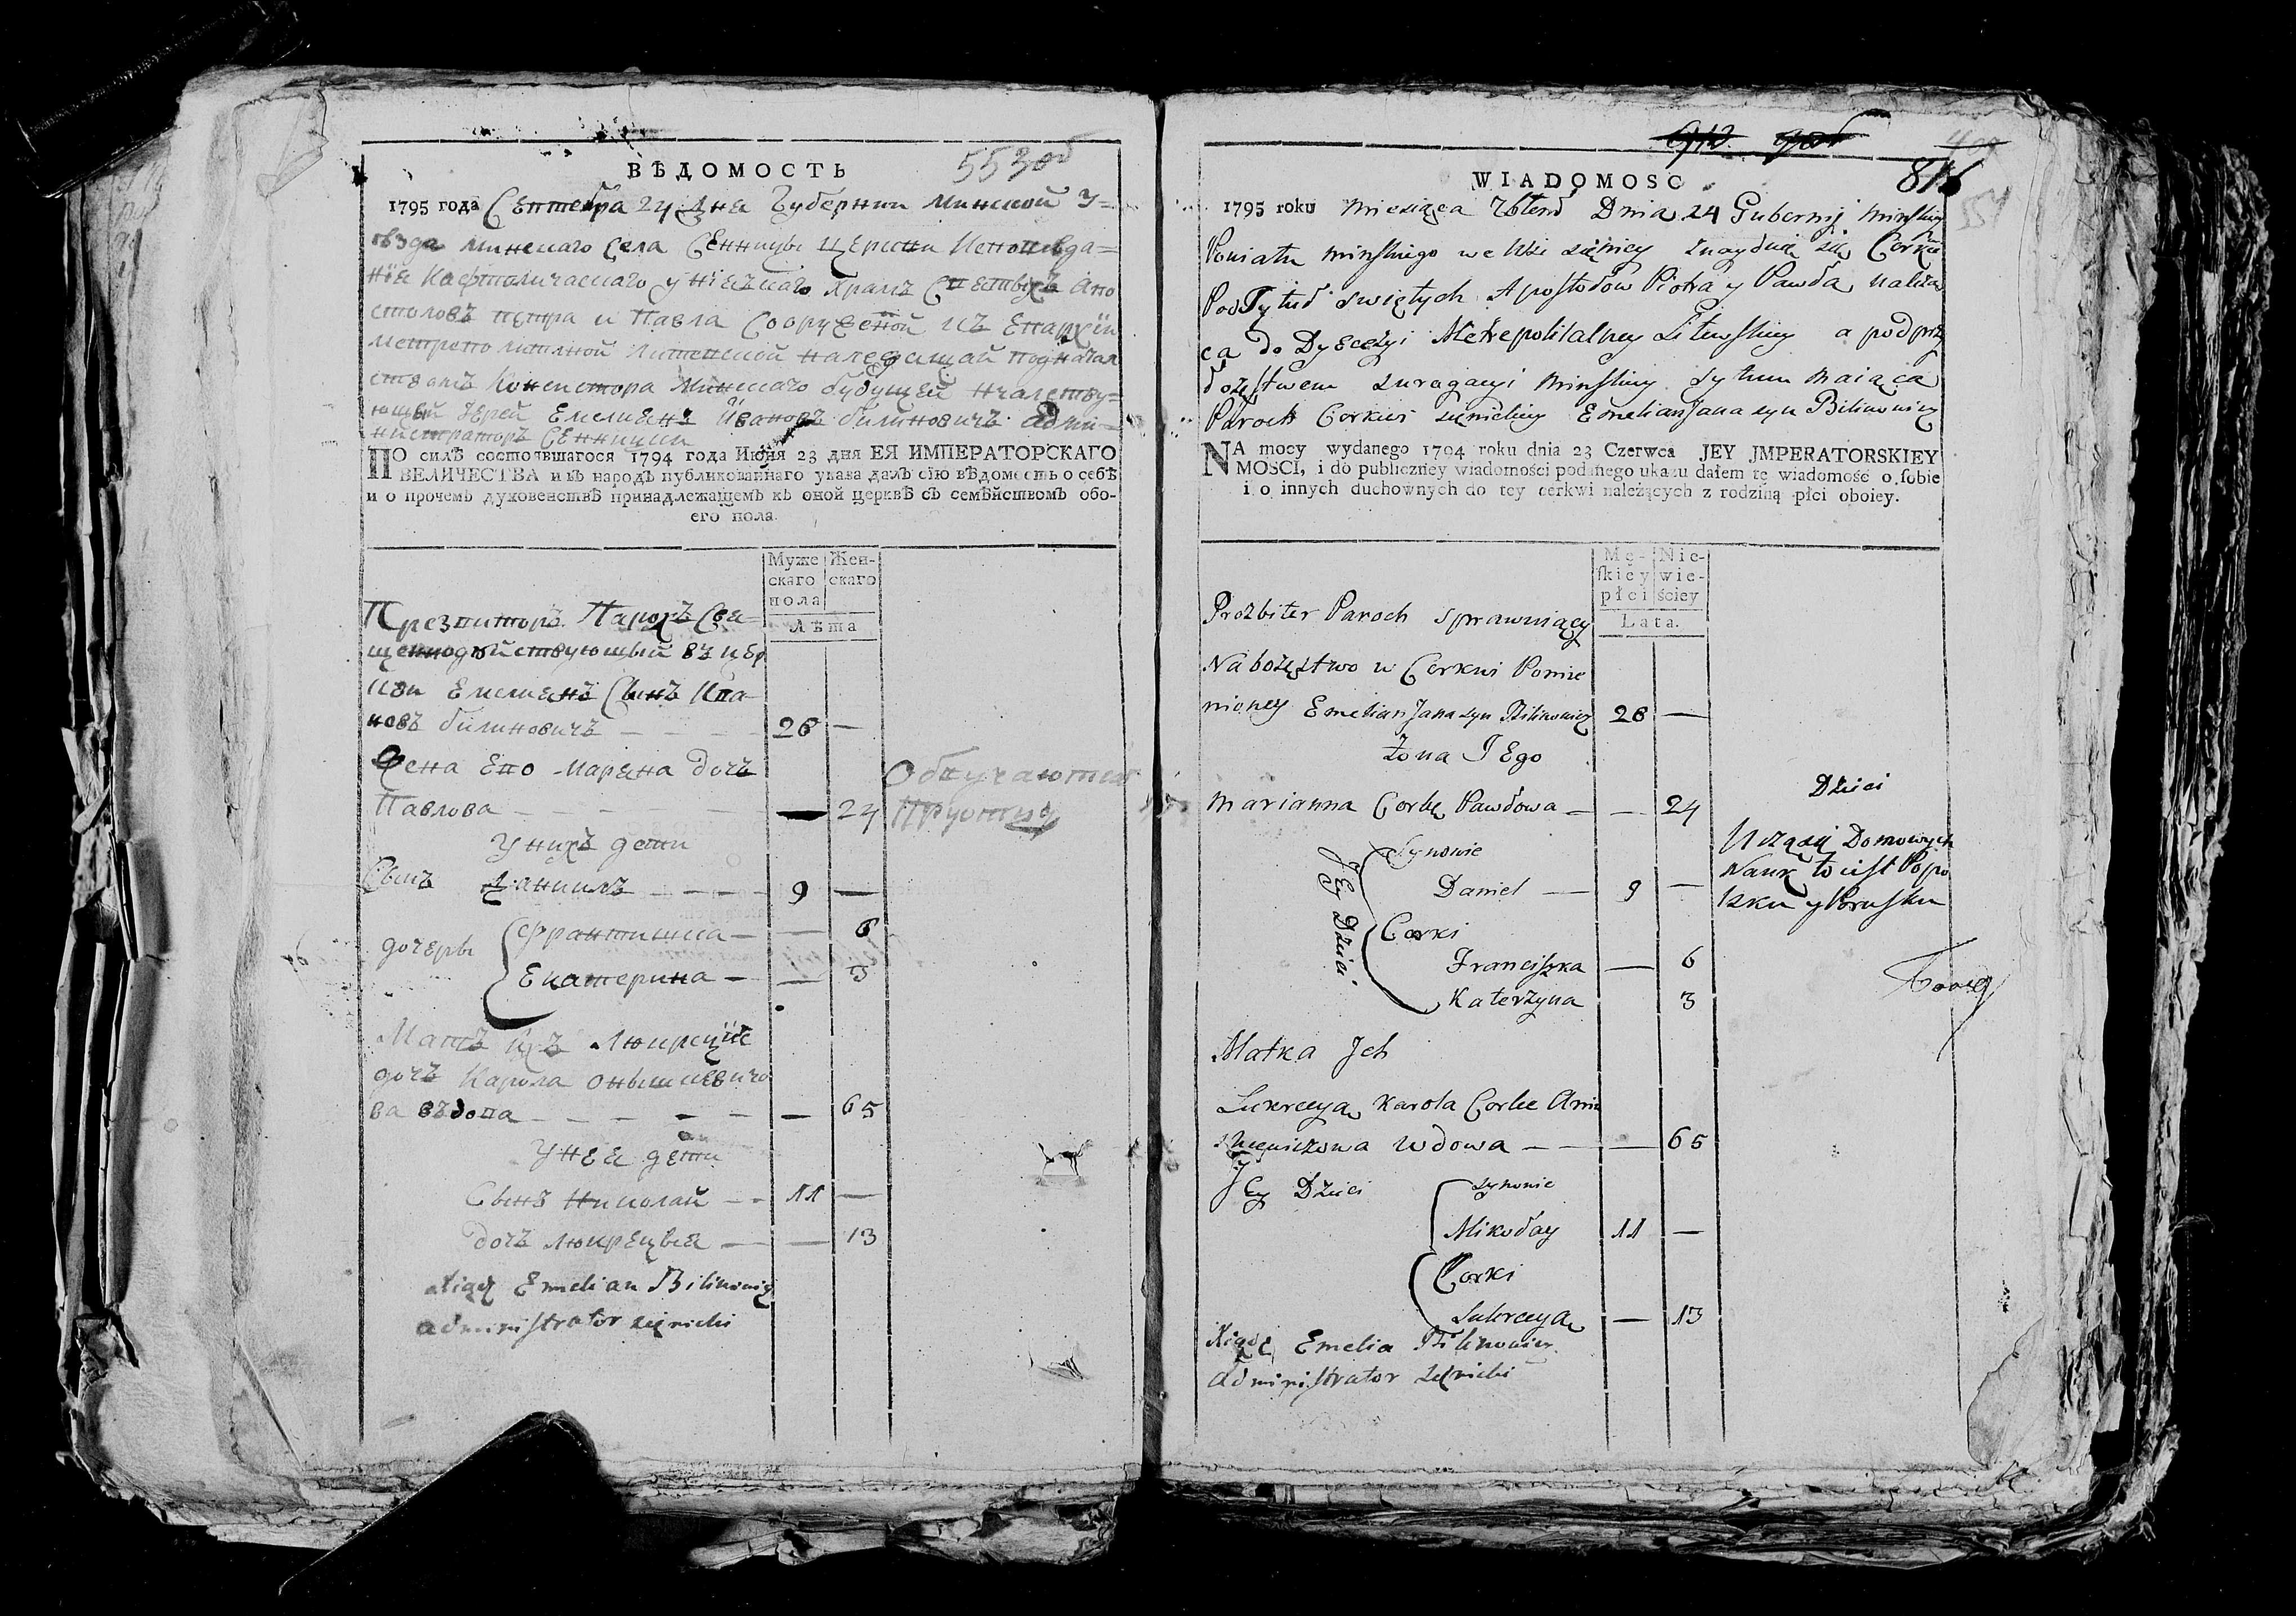 ВѢДОМОСТЬ
5530б
1795 года Септебра 24 Дня Губернии Минской У=
ѣзда Минскаго Села Сенницы Церкви Исповѣда=
нїя Кафтоличаского унїяцкаго Храмъ Святыхъ Апо
столовъ Петра и Павла Сооруженой изъ Епархїи
метрополитаной Литевской належащай под начал
ством Консистора Минскаго будущей началству=
ющый Иерей Емелиянъ Ивановъ билиновичъ Адми=
нистраторъ Сенницки
ПО силѣ состоявшагося 1794 года Июня 23 дня ЕЯ ИМПЕРАТОРСКАГО
ВЕЛИЧЕСТВА и въ народъ публикованнаго указа далъ сїю вѣдомость о себѣ
и о прочемъ духовенствѣ принадлежащемъ къ оной церквѣ съ семѣйствомъ обо-
его пола.
Муже Жен-
скаго скаго
пола
Лѣта
Презвитеръ Парохъ Свя=
щеннодѣйствующый въ цер
кви Емелиянъ Сынъ Ива-
новъ билиновичъ — — — — 26 —
Жена Ево Маряна дочъ
Павлова — — — — — 24
Обучаются
У нихъ дети
Сынъ Даниилъ — — — — 9 —
дочеры Францишка — — 6
Екатерина — — 3
Матъ ихъ Люкрецїя
дочъ Карола
ва въдова — — — — — — 65
У нея дети
Сынъ Николай — — 11 —
дочъ Люкрецыя — — 13
Xiądz Emelian Bilinowicz
administrator sięnicki
816
WIADOMOSC
1795 roku Miesiąca 7brend Dnia 24 Gubernij Minskiey
Powiatu Minskiego we Wsi sięnicy znayduie się Corkiew
Pod Tytuł swiętych Apostołow Piotra y Pawła, należą
ca do Dyecezyi Metropolitalney Litewskiey a pod prze
Paroch Corkwi sięnickiey Emelian Jana syn Bilinowicz
NA mocy wydanego 1794 roku dnia 23 Czerwca JEY JMPERATORSKIEY
MOSCI, i do publiczney wiadomości podanego ukazu dałem tę wiadomość o sobie
i o innych duchownych do tey cerkwi należących z rodziną płci oboiey.
Mę- Nie-
skiey wie-
płci ściey
Lata.
Prezbiter Paroch sprawuiący
Nabożęstwo w Cerkwi Pomie
nioney Emelian Jana syn Bilinowicz 26 —
Żona JEgo
Marianna Corkę Pawłowa — — 24
Jey Dzieci
Synowie
Daniel — 9 —
Corki
Franciszka — 6
Katerzyna 3
Dzieci
Uczącię Domowych
Nauk to iest Popo
lsku y Porusku
Matka Jch
Lukrecya Karola Corke
wdowa — — — 65
Jey Dzieci
Synowie
Mikołay 11 —
Corki
Lukrecya — 13
Xiądz Emelia Bilinowicz
administrator sięnicki